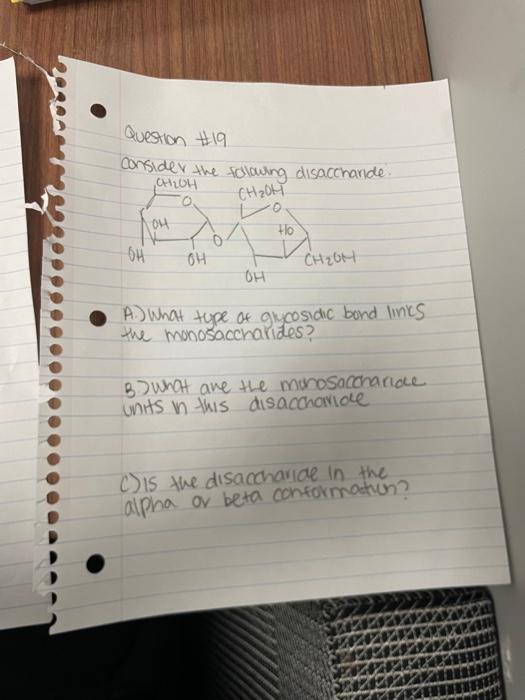 Question #19
Consider the following disaccharide.
CH2OH
CH2OH
O
O
OH
HO
O
OH
OH
CH2OH
OH
A.) What type of glycosidic bond links
the monosaccharides?
B) What are the monosaccharide
units in this disaccharide
C) Is the disaccharide in the
alpha or beta conformation?